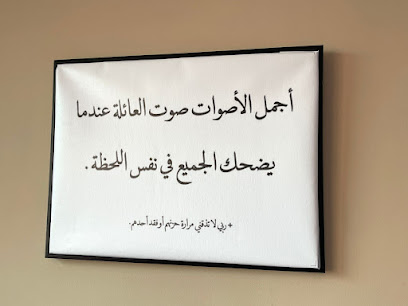 أجمل الأصوات صوت العائلة عندما
يضحك الجميع في نفس اللحظة .
+ ربي لا تذقني مرارة حزنهم أو فقد أحدهم.